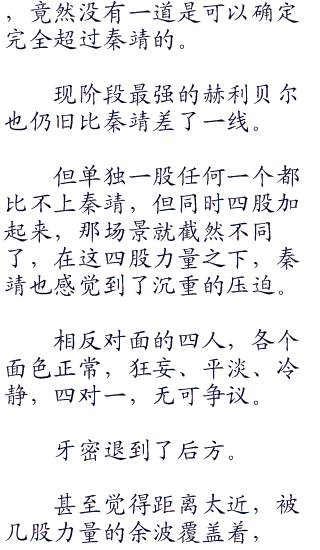 ，竟然没有一道是可以确定
完全超过秦靖的。
现阶段最强的赫利贝尔
也仍旧比秦靖差了一线。
但单独一股任何一个都
比不上秦靖，但同时四股加
起来，那场景就截然不同
了，在这四股力量之下，秦
靖也感觉到了沉重的压迫。
相反对面的四人，各个
面色正常，狂妄、平淡、冷
静，四对一，无可争议。
牙密退到了后方。
甚至觉得距离太近，被
几股力量的余波覆盖着，